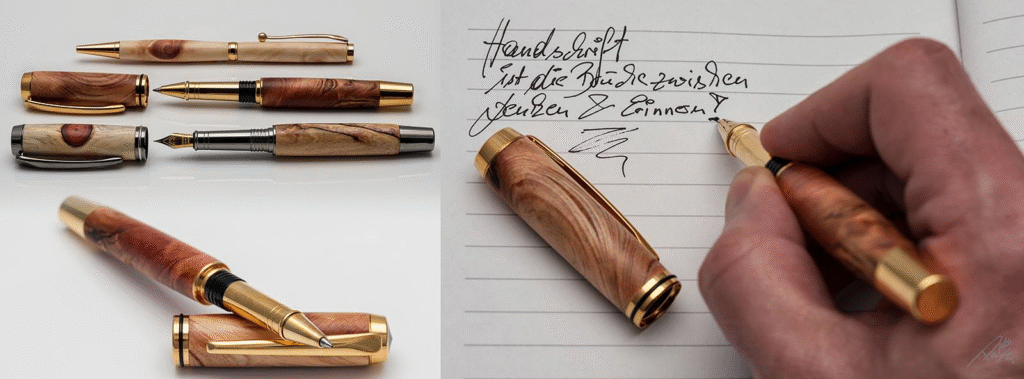 Handschrift
ist die Brücke zwischen
Denken & Erinnern!